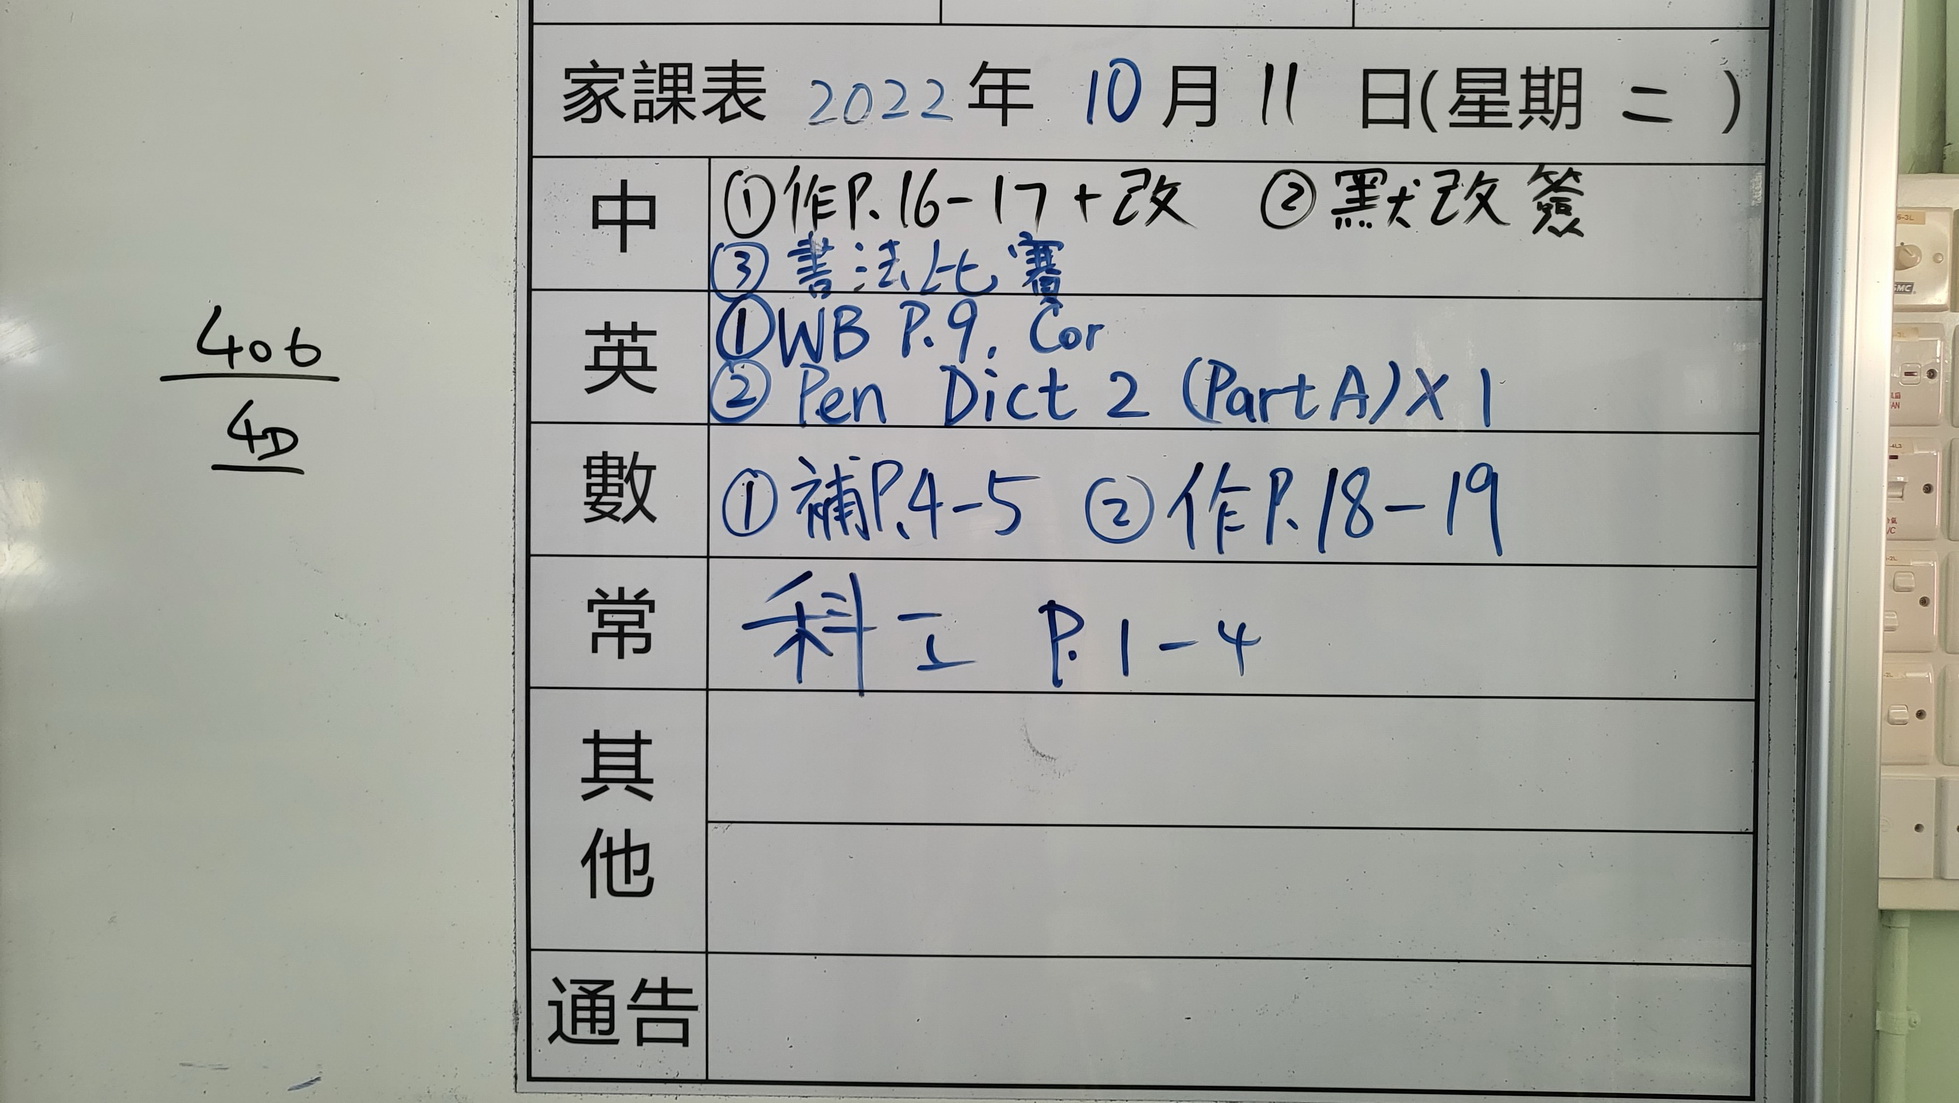 家課表 2022年 10月 11 日(星期 二 )
中
①作P.16-17+改 ②默改簽
③書法比賽
英
①WB P.9. Cor
②Pen Dict 2 (Part A)X1
數
①補P.4-5 ②作P.18-19
常
科工 P.1-4
其他
通告
406
4D